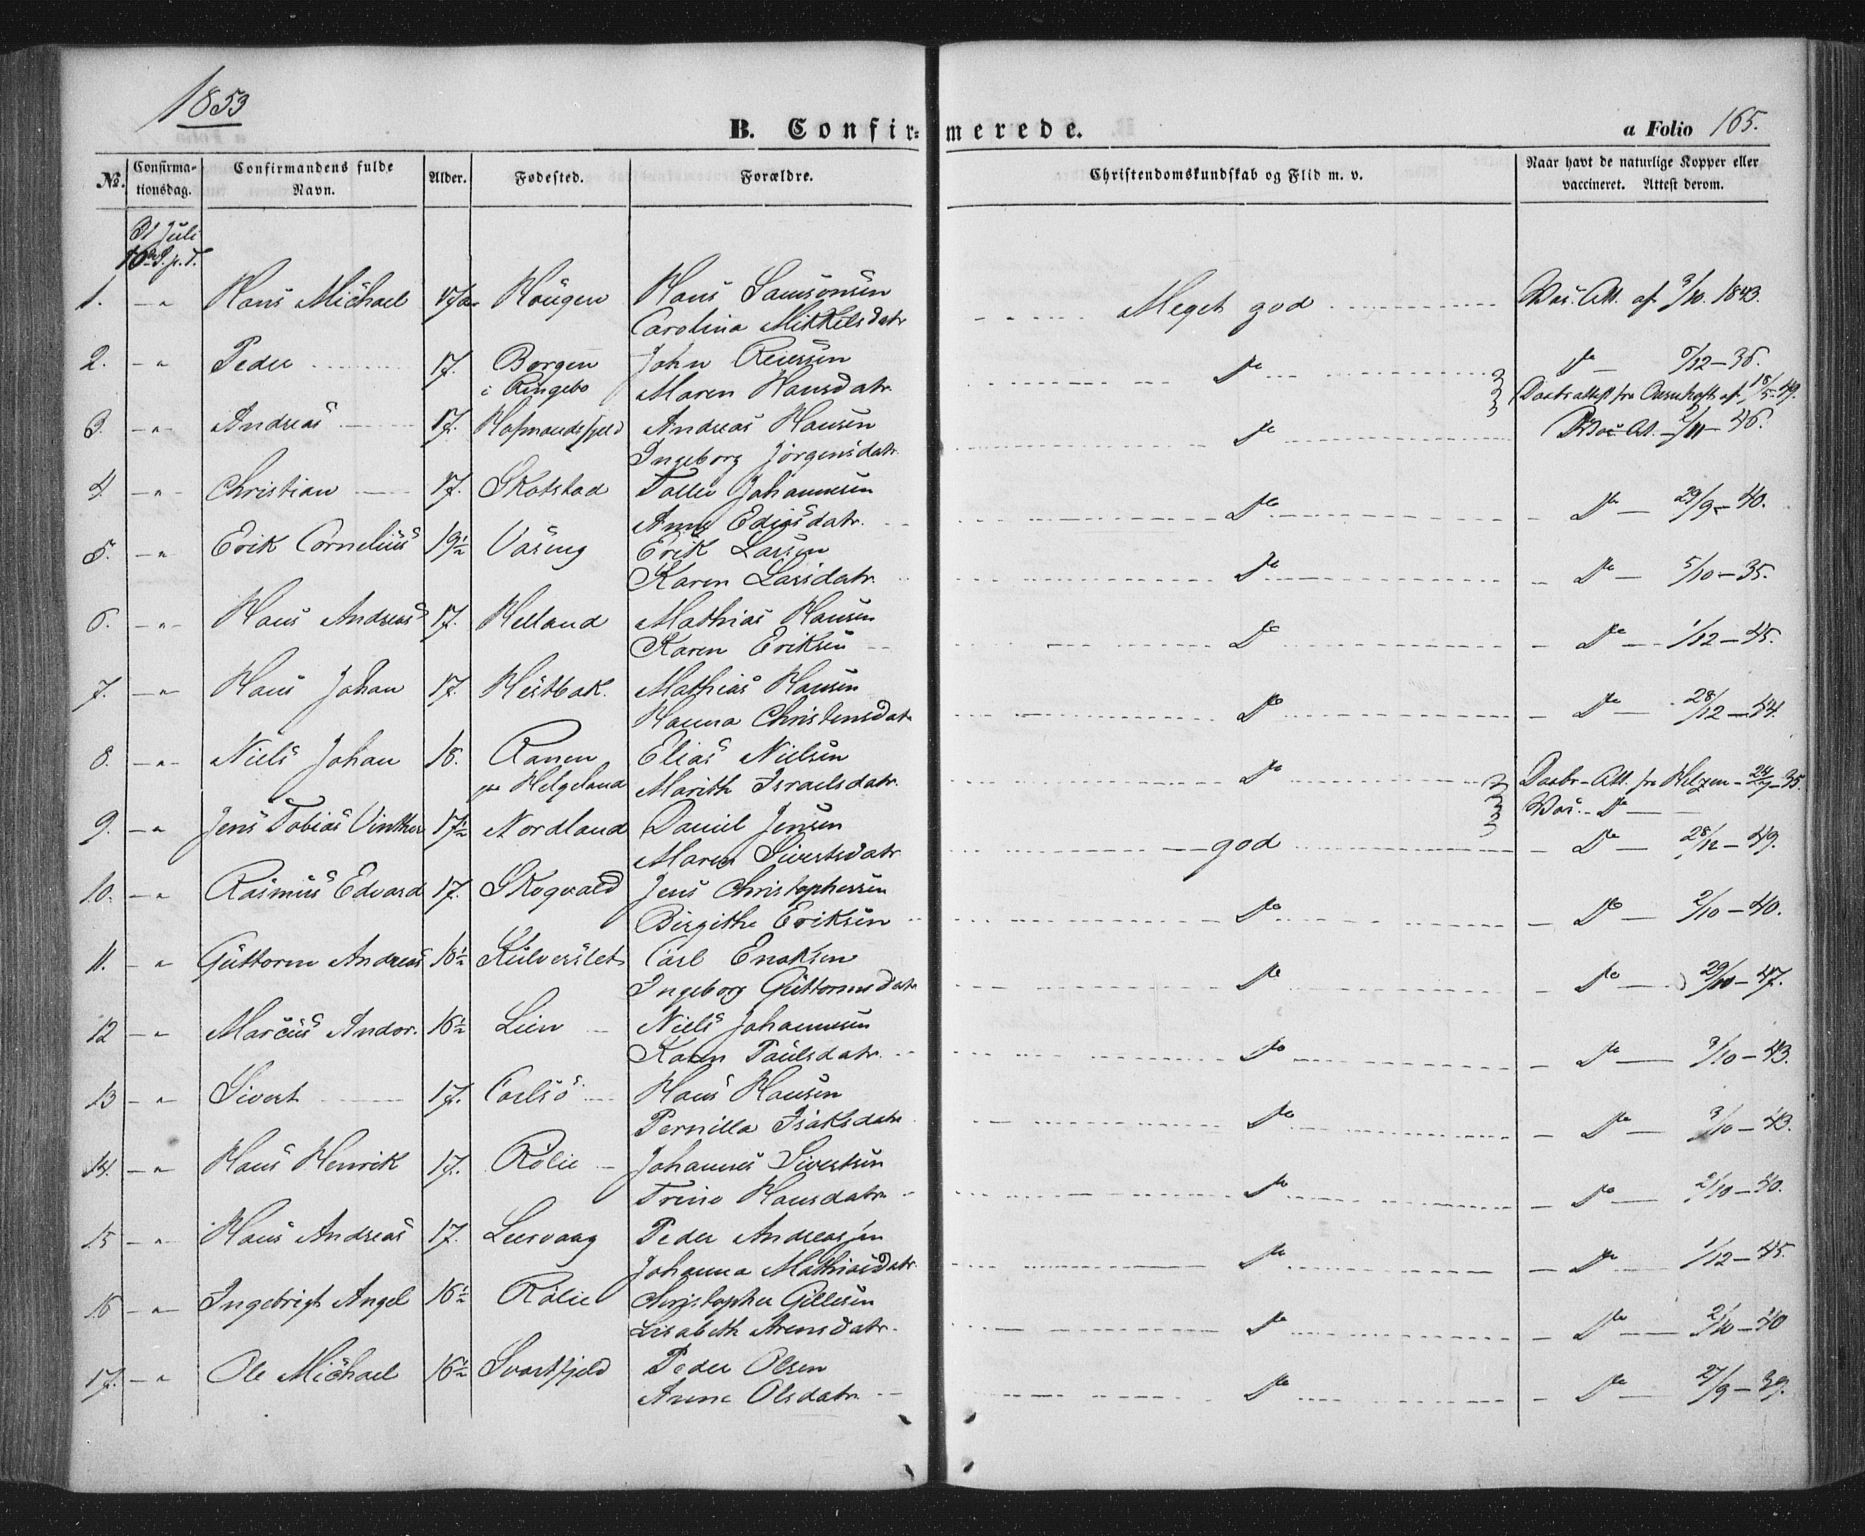 1853
B. Confirmerede.
a Folio 165.
No. Confirmationsdag. Confirmandens fulde Navn. Alder. Fødested. Forældre. Christendomskundskab og Flid m. v. Naar havt de naturlige Kopper eller vaccineret. Attest derom.
31 Juli
10de S. p. T.
1. -"- Hans Michael 17 Haugen Hans Samsonsen Meget god Vac. Att. af 3/10. 1843.
Carolina Mikkelsdatr
2. -"- Peder 17. Borgen John Reiersen Do Do 5/12-36.
i Ringebo Maren Hansdatr Daabsattest fra 18/5-49.
3. -"- Andreas 17. Andreas Hansen Do Vac. At. - 2/11-46.
Ingeborg Jörgensdatr
4. -"- Christian 17. Skotstad Toller Johannesen Do Do - 29/9-40.
Anne datr.
5. -"- Erik Cornelius 19½ Vaseng Erik Larsen Do - Do - 5/10-35.
Karen Larsdatr.
6. -"- Hans Andreas 17. Helland Mathias Hansen Do - Do - 1/12-45.
Karen Eriksen
7. -"- Hans Johan 17. Hestbak. Mathias Hansen Do - Do - 28/12-44.
Hanna Christensdatr
8. -"- Niels Johan 18. Ranen Elias Nielsen Do Daabs-Att. fra - 24/7-35.
Helgeland Marith Israelsdatr. Vac. - Do -
9. -"- Jens Tobias Vinther 17½ Nordland Daniel Jensen god - Do - 28/12-49.
Maren Sivertsdatr
10. -"- Rasmus Edvard 17. Skogvold Jens Christophersen Do - Do - 2/10-40.
Birgithe Eriksen
11. -"- Guttorm Andreas 16½ Kulverslet Carl Enoksen Do - Do - 29/10-47.
Ingeborg Guttormsdatr
12 -"- Marcus Andor. 16½ Lien Niels Johannesen Do - Do - 3/10-43.
Karen Paulsdatr.
13 -"- Sivert 17. Carlsö Hans Hansen Do - Do - 3/10-43.
Pernilla Isaksdatr
14. -"- Hans Henrik 17. Rölie Johannes Sivertsen Do - Do - 2/10-40.
Trine Hansdatr
15 -"- Hans Andreas 17. Leervaag Peder Andreassen Do - Do - 1/12-45.
Johanna Mathiasdatr
16 -"- Ingebrigt Angel 16½ Rölie Christopher Gillesen Do - Do - 2/10-40
Lisabeth Arensdatr.
17. -"- Ole Michael 16½ Svartfjeld Peder Olsen Do - Do - 27/9-39.
Anne Olsdatr.